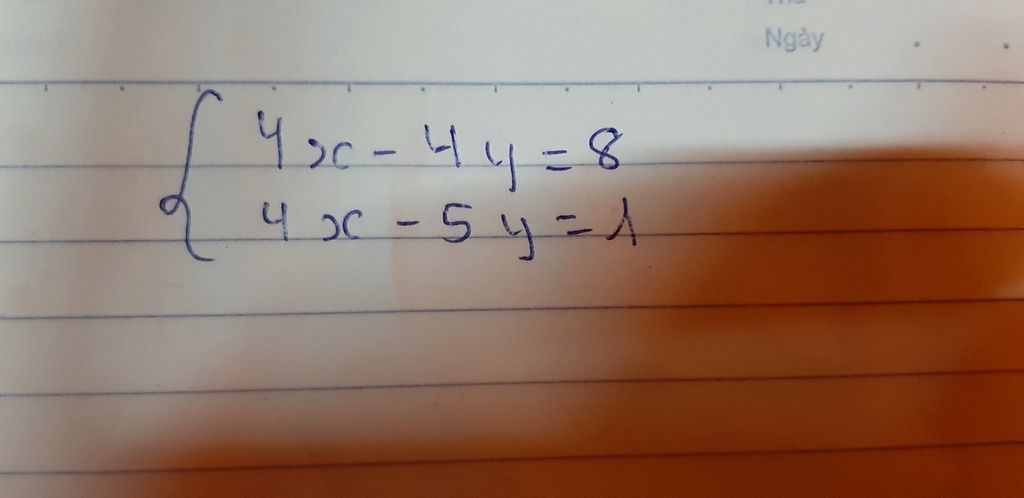 Ngày
4x - 4y = 8
4x - 5y = 1